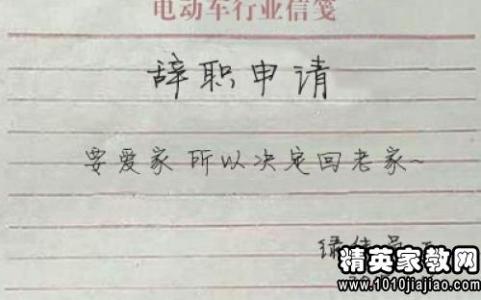 电动车行业信笺
辞职申请
要爱家 所以决定回老家~
绿佳
精英家教网
www.1010jiajiao.com